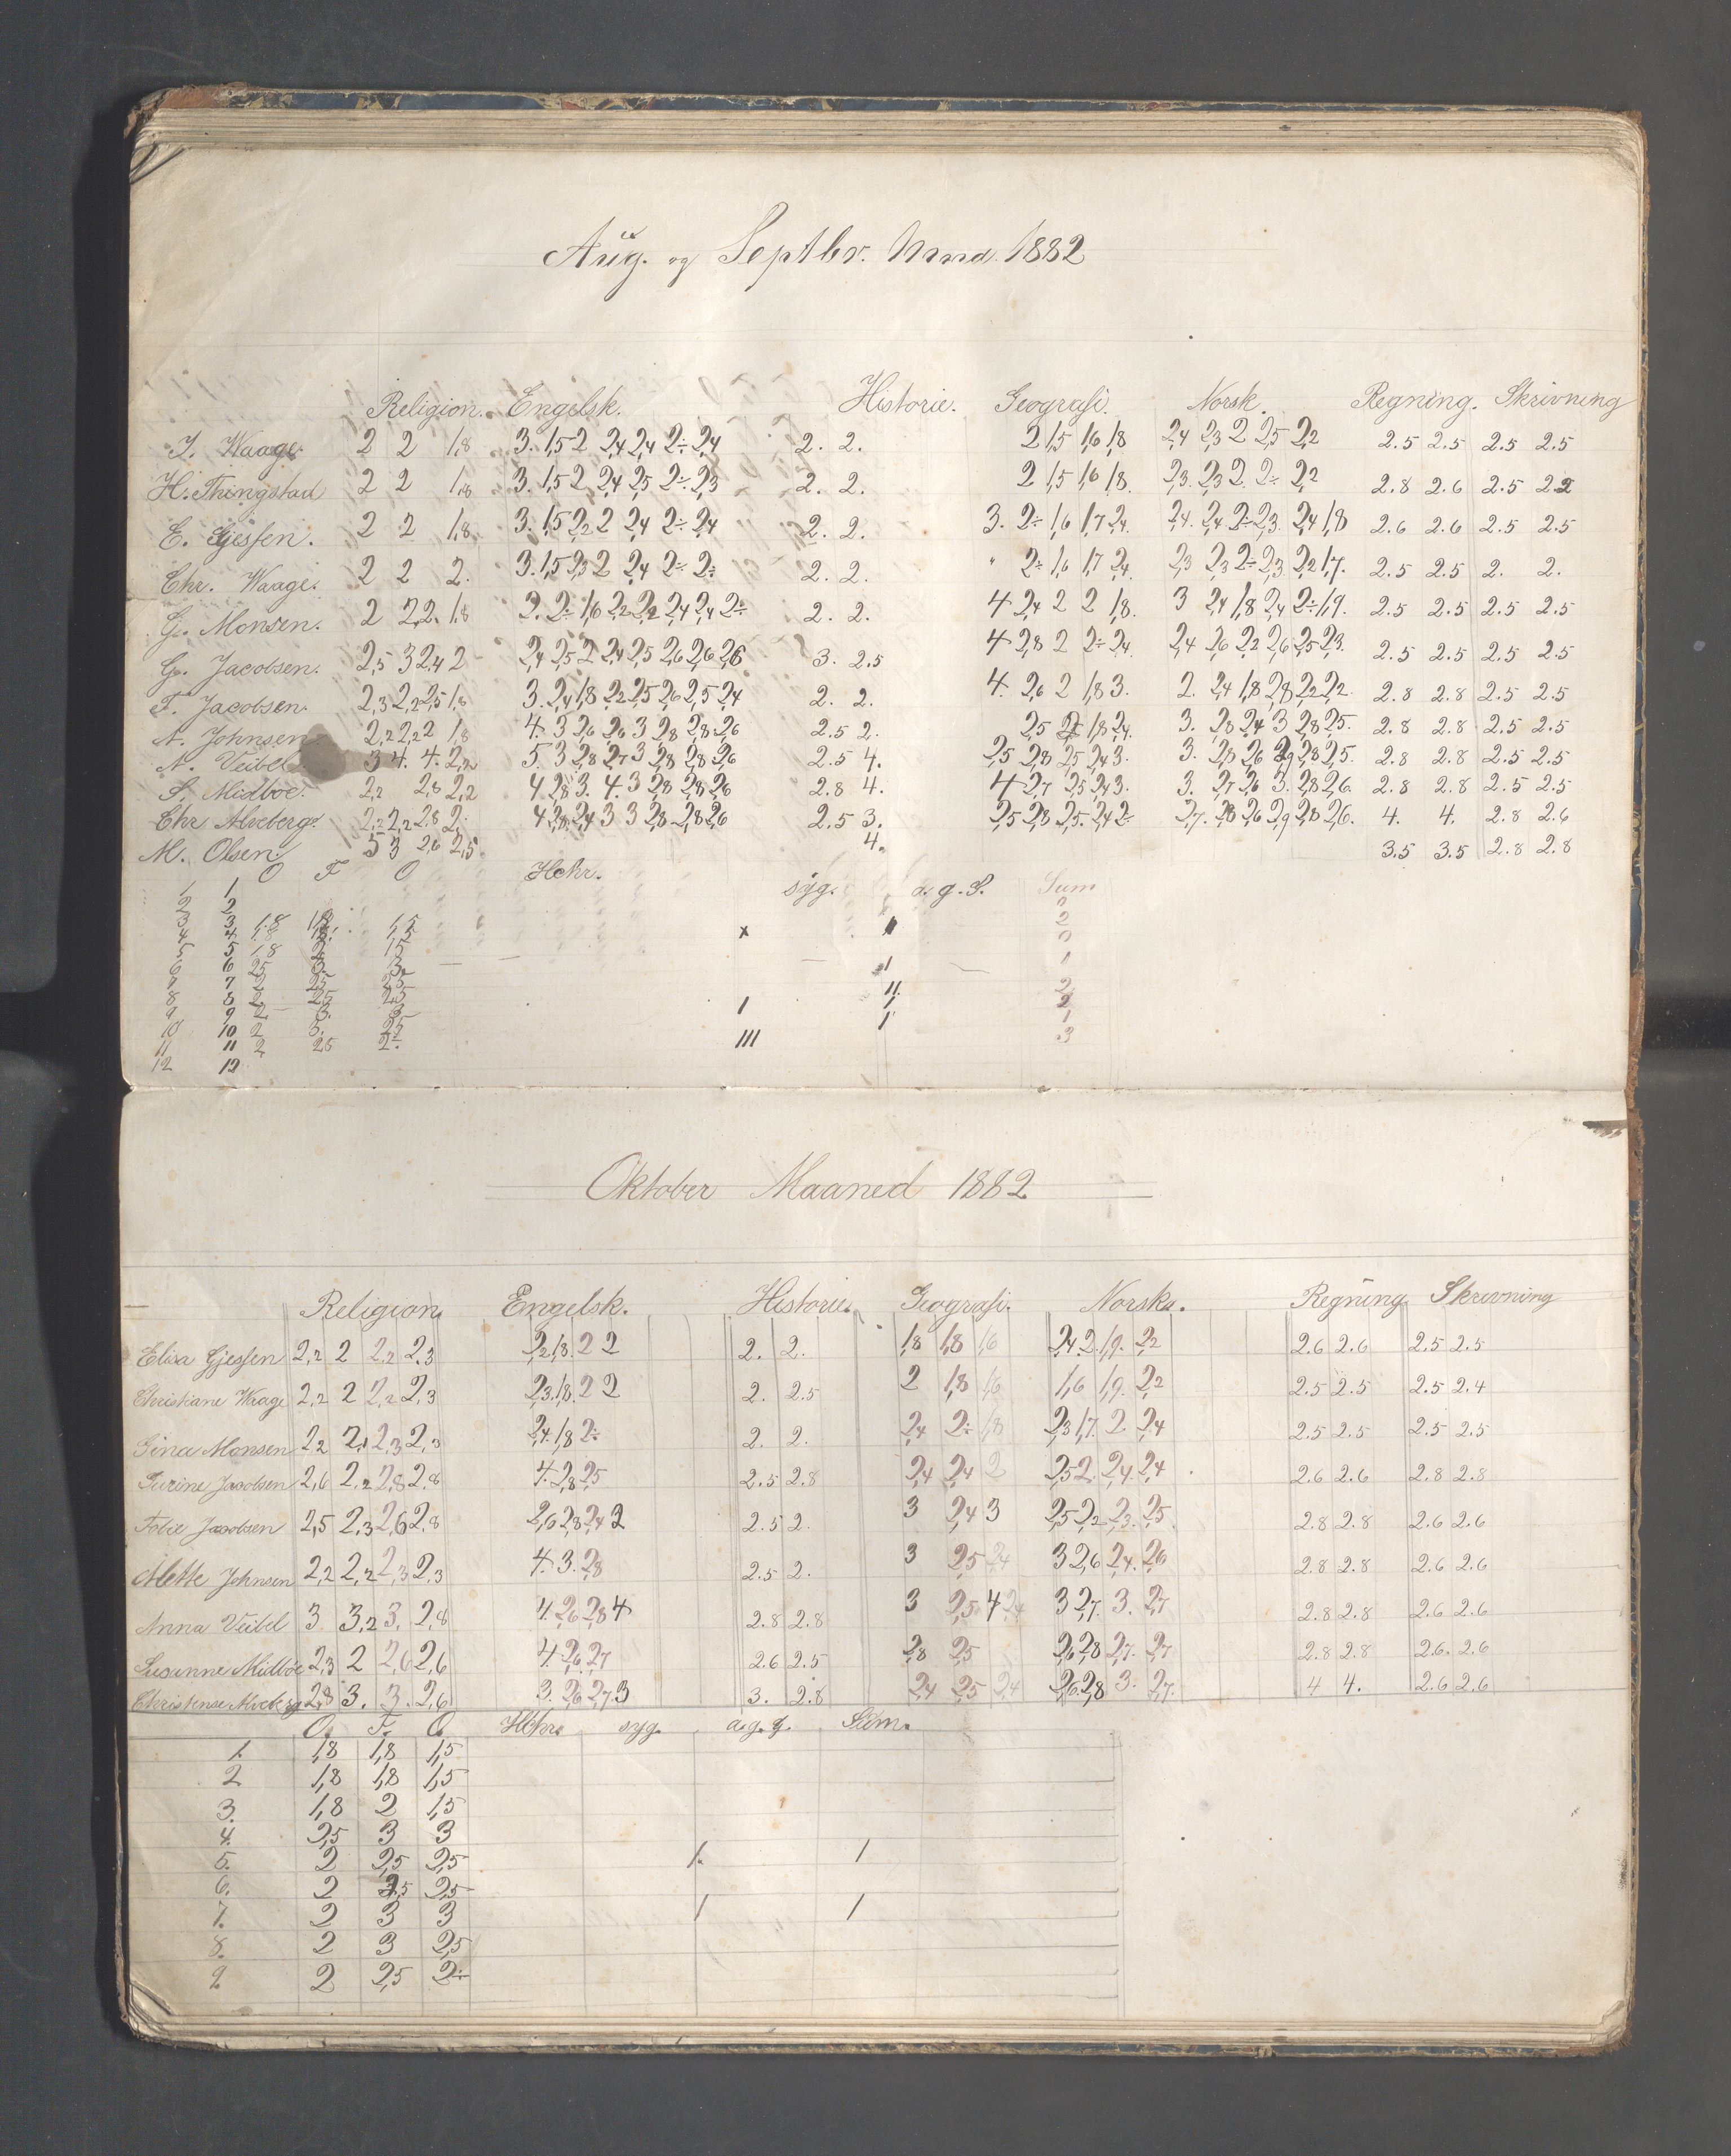 Aug. og Septbr. Mnd. 1882
Religion. Engelsk. Historie. Geografi. Norsk. Regning. Skrivning
J. Waage. 2 2 1,8 3. 1,5 2 2,4 2,4 2÷ 2,4 2. 2. 2 1,5 1,6 1,8 2,4 2,3 2 2,5 2,2 2.5 2.5 2.5 2.5
H. Thingstad 2 2 1,8 3. 1,5 2 2,4 2,5 2÷ 2,3 2. 2. 2 1,5 1,6 1,8. 2,3. 2,3 2. 2÷ 2,2 2.8 2.6 2.5 2.2
E. Gjessen. 2 2 1,8 3. 1,5 2,2 2 2,4 2÷ 2,4 2. 2. 3. 2÷ 1,6 1,7 2,4. 2,4. 2,4 2÷ 2,3. 2,4 1,8 2.6 2.6 2.5 2.5
Chr. Waage. 2 2 2. 3. 1,5 2,3 2 2,4 2÷ 2÷ 2. 2. " 2÷ 1,6 1,7 2,4. 2,3 2,3 2÷ 2,3 2,2 1,7. 2.5 2.5 2. 2.
G. Monsen. 2 2,2. 1,8 2. 2÷ 1,6 2,2 2,2 2,4 2,4 2÷ 2. 2. 4 2,4 2 2 1,8. 3 2,4 1,8 2,4 2÷ 1,9. 2.5 2.5 2.5 2.5
G. Jacobsen. 2,5 3 2,4 2 2,4 2,5 2 2,4 2,5 2,6 2,6 2,6 3. 2.5 4 2,8 2 2÷ 2,4. 2,4 2,6 2,2 2,6 2,5 2,3. 2.5 2.5 2.5 2.5
T. Jacobsen. 2,3 2,2 2,5 1,8 3. 2,4 1,8 2,2 2,5 2,6 2,5 2,4 2. 2. 4. 2,6 2 1,8 3. 2. 2,4 1,8 2,8 2,2 2,2. 2.8 2.8 2.5 2.5
A. Johnsen 2,2 2,2 2 1,8 4. 3 2,6 2,6 3 2,8 2,8 2,6 2.5 2. 2,5 1,8 2,4. 3. 2,8 2,4 3 2,8 2,5. 2.8 2.8 2.5 2.5
A. Veibel 3 4. 4. 2,2 5. 3 2,8 2,7 3 2,8 2,8 2,6 2.5 4. 2,5 2,8 2,5 2,4 3. 3. 2,8 2,6 2,9 2,8 2,5. 2.8 2.8 2.5 2.5
S. Midböe. 2,2 2,8 2,2 4 2,8 3. 4. 3 2,8 2,8 2,6 2.8 4. 4 2,7 2,5 2,4 3. 3. 2,7 2,6 3. 2,8 2,6. 2.8 2.8 2.5 2.5
Chr Alveberg. 2,2 2,2 2,8 2÷ 4 2,8. 2,4 3 3 2,8 2,8 2,6 2.5 3. 2,5 2,8 2,5. 2,4 2÷ 2,7. 2,8 2,6 2,9 2,8 2,6. 4. 4. 2.8 2.6
M. Olsen. 3 3 2,6 2,5. 4. 3.5 3.5 2.8 2.8
O F O Hchr. syg. a. g. S. Sum
1 1
2 2 2
3 3 1,8 1,5 2
4 4 1,8 1,5 x 0
5 5 1,8 2 1,5
6 6 2,5 3. 3. 1 1
7 7 2 2,5 2,5
8 8 2 2,5 2,5 11. 2
9 9 2 3. 3. 1 1 2
10 10 2 3. 2,5 1 1
11 11 2 2,5 2÷ 111 3
12 12
Oktober Maaned 1882
Religion Engelsk. Historie. Geografi. Norska. Regning Skrivning
Elisa Gjessen 2,2 2 2,2 2,3 2,2 1,8. 2 2 2. 2. 1,8 1,8 1,6 2,4 2. 1,9. 2,2 2.6 2.6 2.5 2.5
Christiane Waage 2,2 2 2,2 2,3 2,3. 1,8. 2 2 2. 2.5 2 1,8 1,6 1,6 1,9. 2,2 2.5 2.5 2.5 2.4
Gina Monsen 2,2 2,1 2,3 2,3 2,4. 1,8 2÷ 2. 2. 2,4 2÷ 1,8 2,3 1,7. 2. 2,4 2.5 2.5 2.5 2.5
Gurine Jacobsen 2,6 2,2 2,8 2,8 4. 2,8 2,5 2.5 2.8 2,4 2,4 2 2,5 2. 2,4. 2,4 2.6 2.6 2.8 2.8
Tobie Jacobsen 2,5 2,3 2,6 2,8 2,6 2,8 2,4 2 2.5 2. 3 2,4 3 2,5 2,2 2,3. 2,5 2.8 2.8 2.6 2.6
Mette Johnsen 2,2 2,2 2,3 2,3 4. 3. 2,8 2.5 2. 3 2,5 2,4 3 2,6 2,4. 2,6 2.8 2.8 2.6 2.6
Anna Veibel 3 3,2 3. 2,8 4. 2,6 2,8 4 2.8 2.8 3 2,5 4 2,4 3 2,7. 3. 2,7 2.8 2.8 2.6 2.6
Susanne Midböe 2,3 2 2,6 2,6 4. 2,6. 2,7 2.6 2.5 2,8 2,5 2,6 2,8 2,7. 2,7 2.8 2.8 2.6. 2.6
Christense Alveberg 2,8 3. 3. 2,6 3. 2,6 2,7. 3 3. 2.8 2,4 2,5 2,4 2,6. 2,8 3. 2,7. 4 4. 2.6 2.6
O. F. O. Hchr. syg. a. g. g. Sum.
1. 1,8 1,8 1,5
2 1,8 1,8 1,5
3. 1,8 2 1,5
4. 2,5 3 3
5. 2 2,5 2,5 1. 1
6. 2 2,5 2,5
7. 2 3 3 1 1
8. 2 3 2,5
9. 2 2,5 2÷